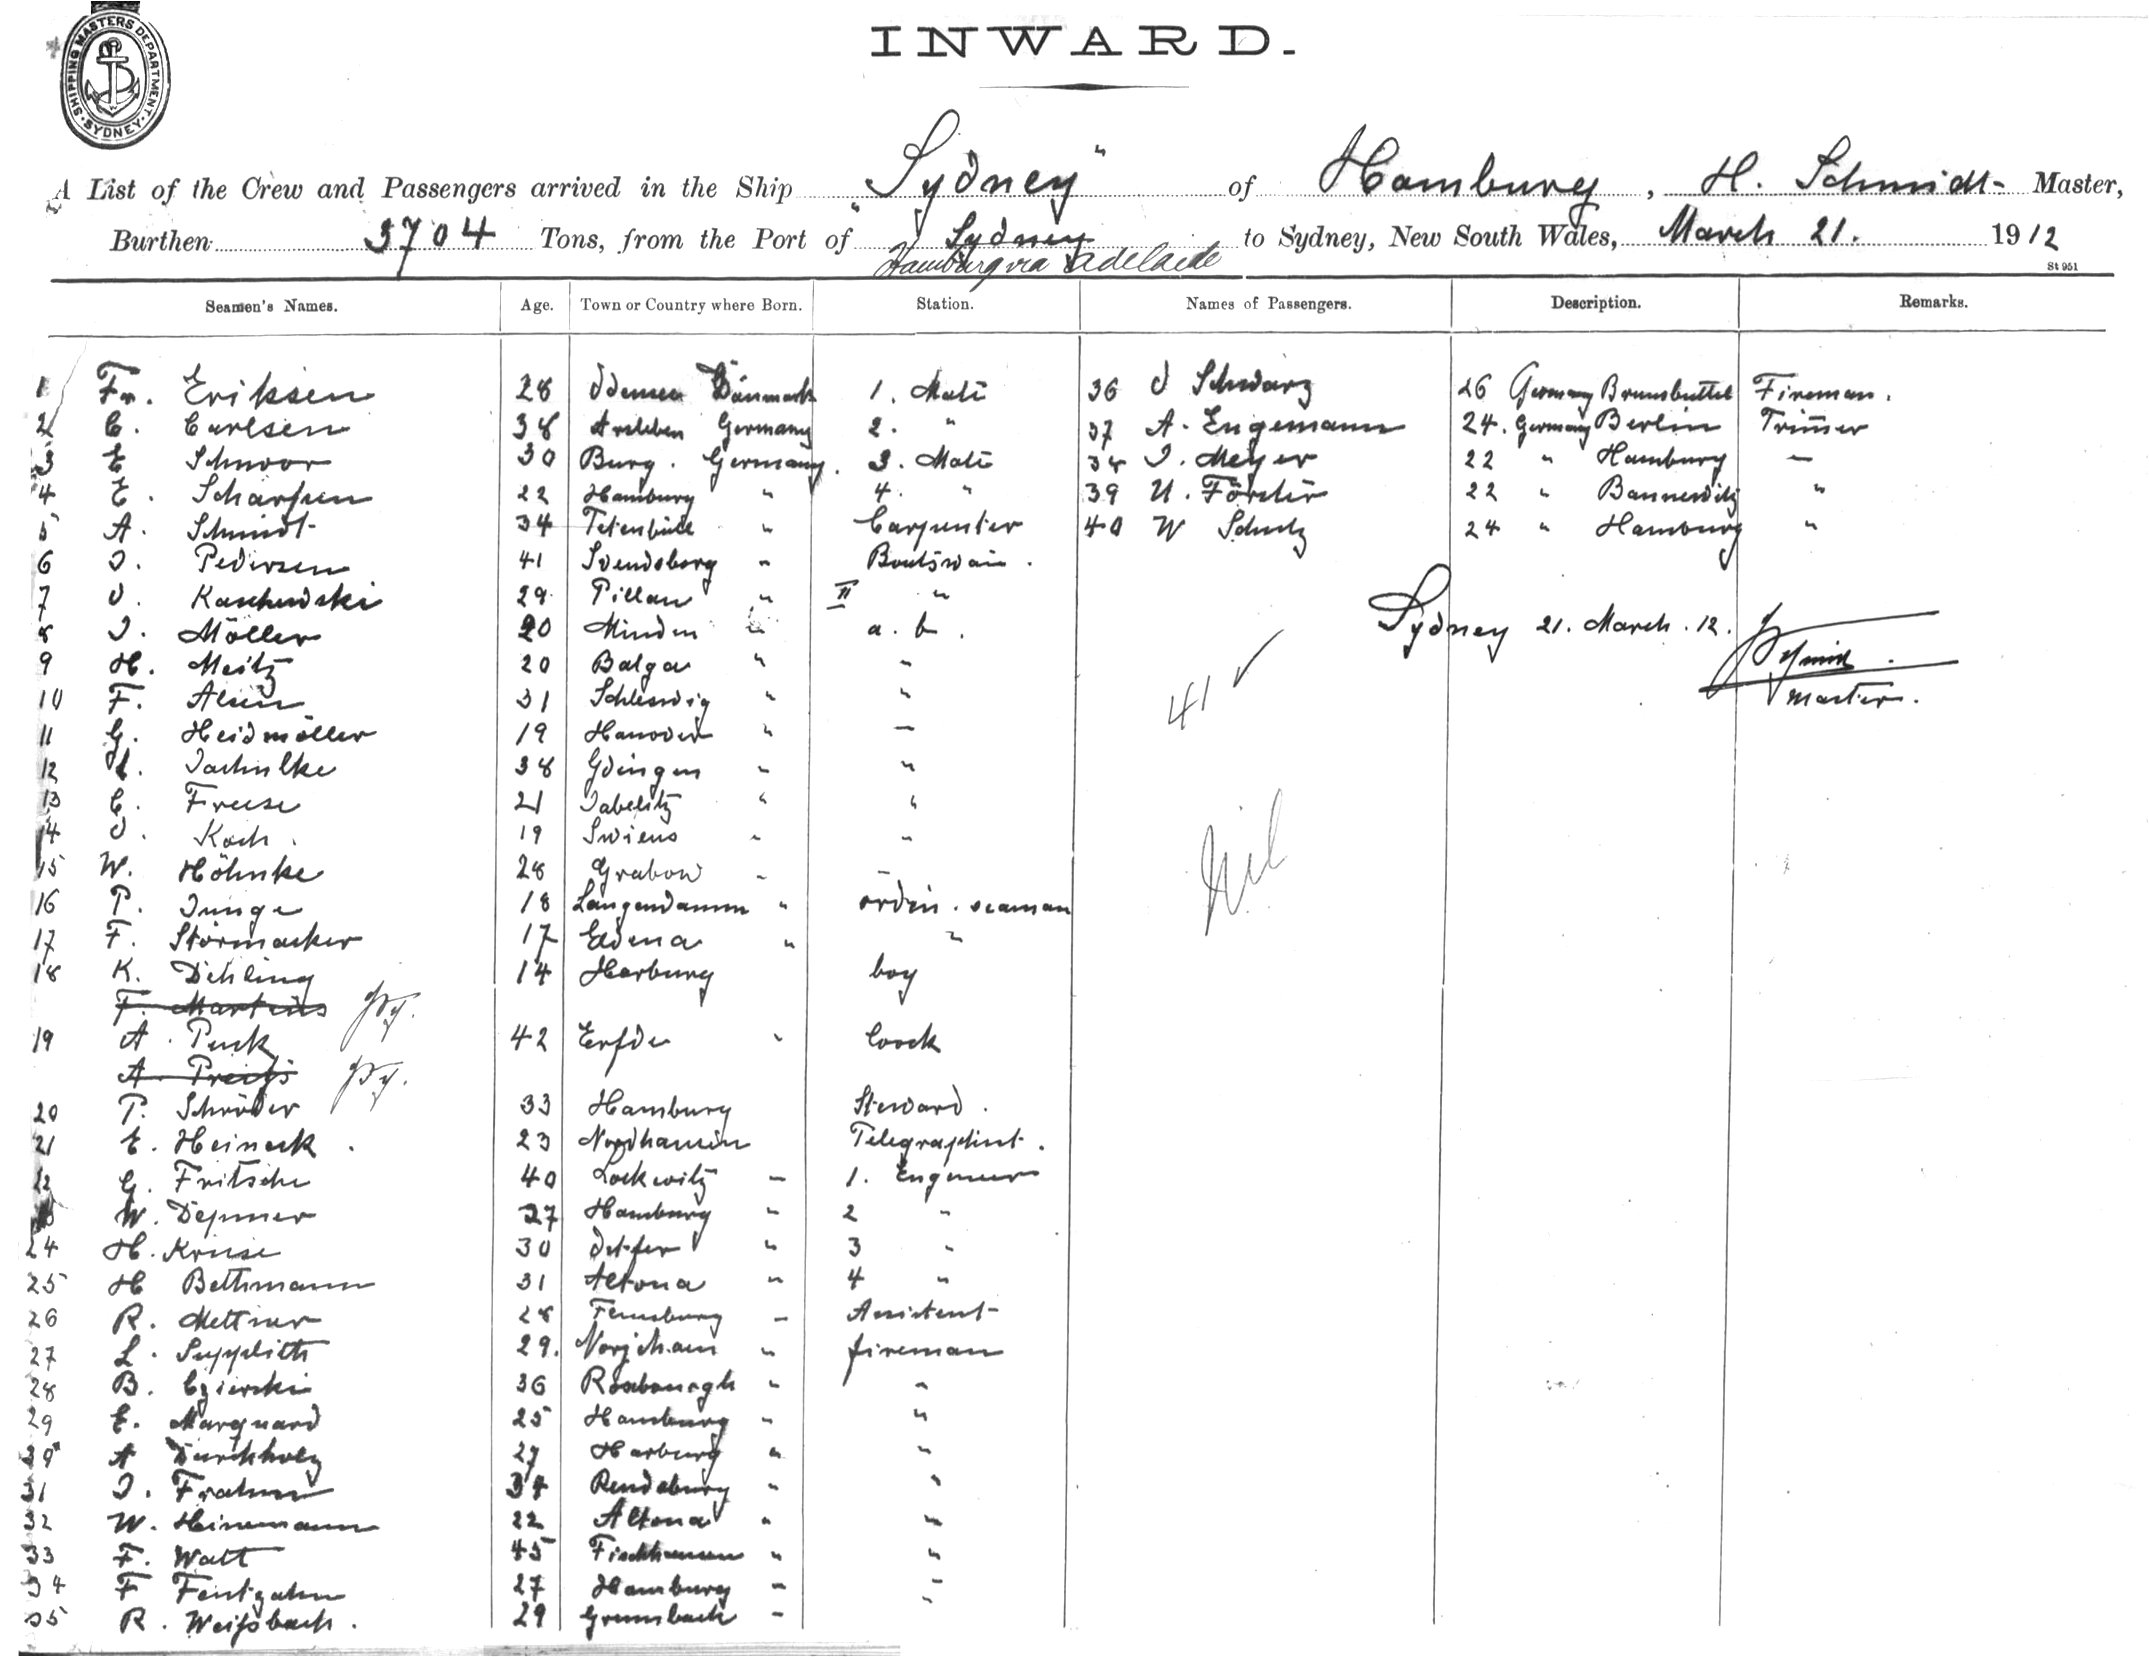 SHIPPING MASTERS DEPARTMENT. SYDNEY.
INWARD.
A List of the Crew and Passengers arrived in the Ship "Sydney" of Hamburg, H. Schmidt Master,
Burthen 3704 Tons, from the Port of Sydney to Sydney, New South Wales, March 21. 1912
Hamburg via Adelaide
St 951
Seamen's Names. Age. Town or Country where Born. Station. Names of Passengers. Description. Remarks.
1 Fr. Eriksen 28 Odense Dänmark 1. Mate 36 J Schwarz 26 Germany Brunsbüttel Fireman.
2 C. Carlsen 38 Germany 2. " 37 A. Engemann 24. Germany Berlin Trimer
3 E Schnoor 30 Burg. Germany. 3. Mate 38 J. Meyer 22 " Hamburg "
4 E. 22 Hamburg " 4. " 39 U. Förster 22 " Bannewitz "
5 A. Schmidt 34 Tetenbüll " Carpenter 40 W Schulz 24 " Hamburg "
6 J. Pedersen 41 Svendsborg " Boutswain.
7 J. Kaschewski 29 Pillau " II "
Sydney 21. March. 12.
8 J. Möller 20 Minden " a. b.
9 H. Meitz 20 Balga " "
Master.
41 ✓
10 F. Alsen 31 Schleswig " "
11 G. Heidmöller 19 Hanover " "
12 Jachulke 38 Gdingen " "
13 C. Freese 21 Jabelitz " "
14 J. Koch. 19 " "
15 W. Höhnke 28 Grabow "
Nil
16 P. Junge 18 Langendamm " ordin. seaman
17 F. Störmacker 17 Eldena " "
18 K. Dehling 14 Harburg boy
F. Martens
19 A. Puck 42 Erfde " Coock
A. Preuss
20 P. Schröder 33 Hamburg Steward.
21 E. Heineck. 23 Nordhausen Telegraphist.
22 G. Fritsche 40 Lockwitz " 1. Engineer
W. 27 Hamburg " 2 "
24 H. Kruse 30 " 3 "
25 H Bethmann 31 Altona " 4 "
26 R. Mettner 28 Flensburg " Assistent
27 L. Supplith 29. " fireman
28 B. Czierski 36 Roxbourgh " "
29 E. Marquard 25 Hamburg " "
A Durchholz 27 Harburg " "
31 J. Frahm 34 Rendsburg " "
32 W. Heinemann 22 Altona " "
33 F. Watt 45 Fischhausen " "
34 F 27 Hamburg " "
35 R. Weißbach. 29 Grumbach " "